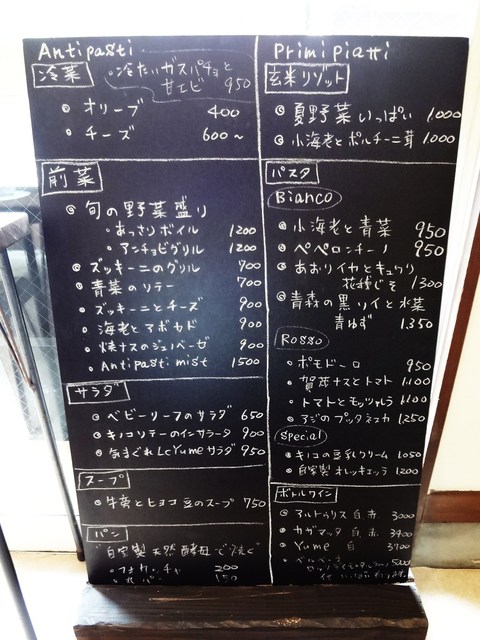 Antipasti
冷菜
冷たいガスパチョと
甘エビ 950
オリーブ 400
チーズ 600~
前菜
旬の野菜盛り
あっさりボイル 1200
アンチョビグリル 1200
ズッキーニのグリル 700
青菜のソテー 700
ズッキーニとチーズ 900
海老とアボカド 900
焼ナスのジェノベーゼ 900
Antipasti mist 1500
サラダ
ベビーリーフのサラダ 650
キノコソテーのインサラータ 900
気まぐれ Le Yume サラダ 950
スープ
牛蒡とヒヨコ豆のスープ 750
パン
"自家製 天然酵母で焼く"
フォカッチャ 200
150
Primi piatti
玄米リゾット
夏野菜いっぱい 1000
小海老とポルチーニ茸 1000
パスタ
Bianco
小海老と青菜 950
ペペロンチーノ 950
あおりイカとキュウリ
花穂じそ 1300
青森の黒ソイと水菜
青ゆず 1350
Rosso
ポモドーロ 950
賀茂ナスとトマト 1100
トマトとモッツァレラ 1100
アジのプッタネスカ 1250
Special
キノコの豆乳クリーム 1050
自家製オレッキエッテ 1200
ボトルワイン
アルトゥリス 白 赤 3000
カザマッタ 白 赤 3400
Yume 白 3700
5000